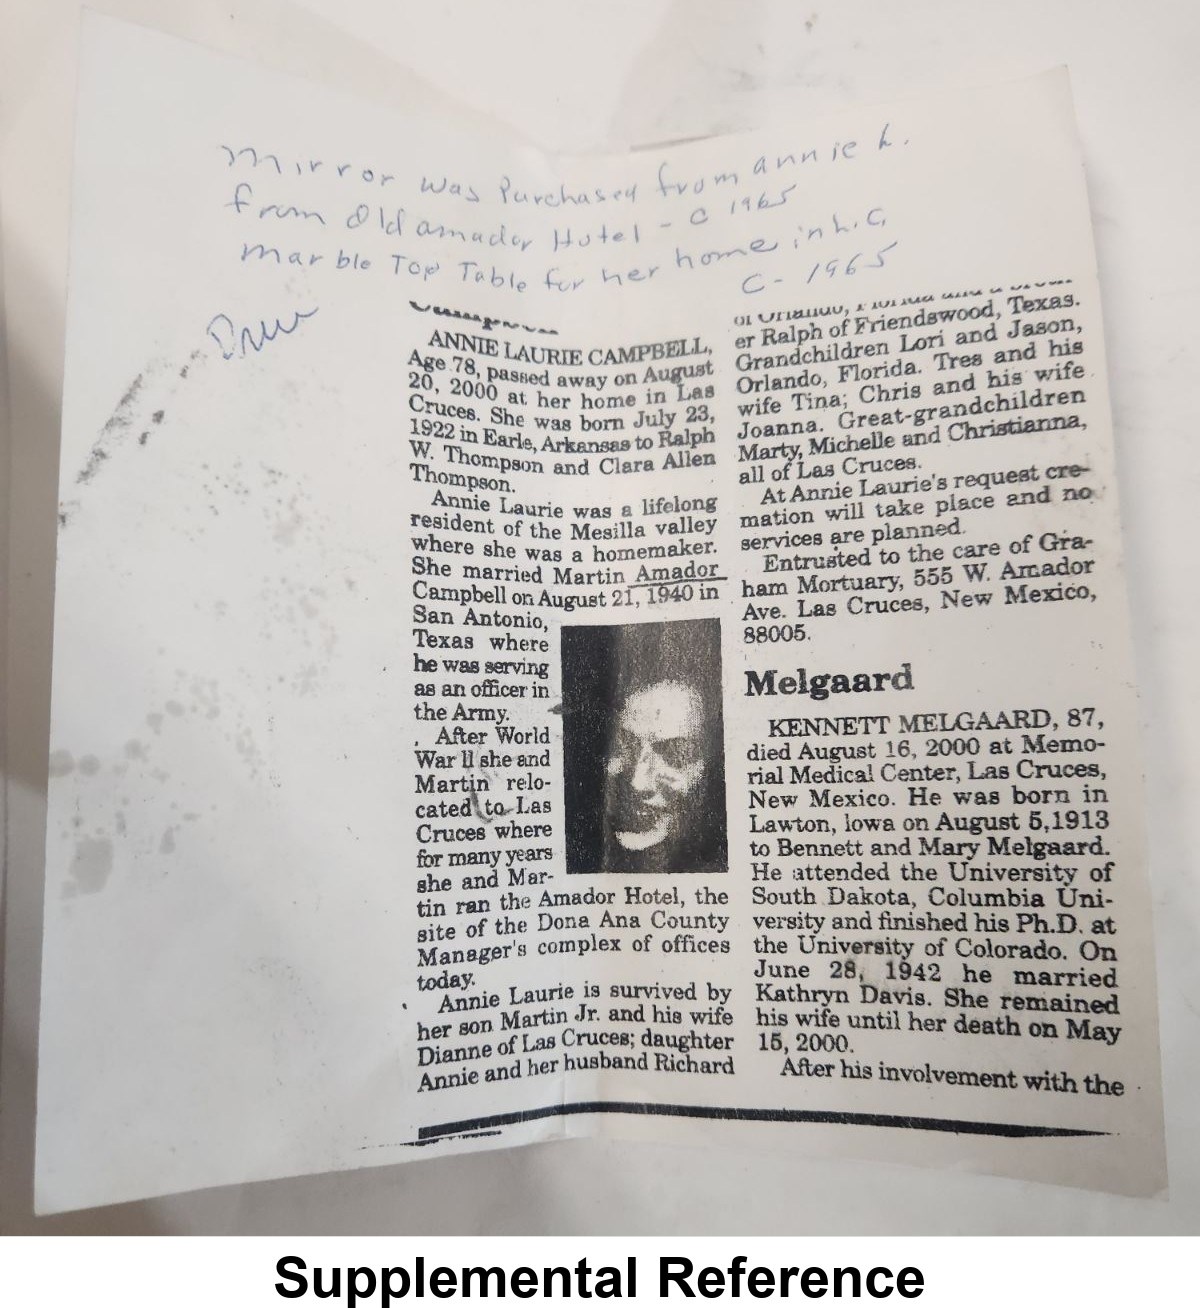 Mirror was Purchased from annie L.
from Old amador Hotel - C 1965
Marble Top Table for her home in L.C
C - 1965
ANNIE LAURIE CAMPBELL,
Age 78, passed away on August
20, 2000 at her home in Las
Cruces. She was born July 23,
1922 in Earle, Arkansas to Ralph
W. Thompson and Clara Allen
Thompson.
Annie Laurie was a lifelong
resident of the Mesilla valley
where she was a homemaker.
She married Martin Amador
Campbell on August 21, 1940 in
San Antonio,
Texas where
he was serving
as an officer in
the Army.
After World
War II she and
Martin relo-
cated to Las
Cruces where
for many years
she and Mar-
tin ran the Amador Hotel, the
site of the Dona Ana County
Manager's complex of offices
today.
Annie Laurie is survived by
her son Martin Jr. and his wife
Dianne of Las Cruces; daughter
Annie and her husband Richard
of Orlando, Florida and a
er Ralph of Friendswood, Texas.
Grandchildren Lori and Jason,
Orlando, Florida. Tres and his
wife Tina; Chris and his wife
Joanna. Great-grandchildren
Marty, Michelle and Christianna,
all of Las Cruces.
At Annie Laurie's request cre-
mation will take place and no
services are planned.
Entrusted to the care of Gra-
ham Mortuary, 555 W. Amador
Ave. Las Cruces, New Mexico,
88005.
Melgaard
KENNETT MELGAARD, 87,
died August 16, 2000 at Memo-
rial Medical Center, Las Cruces,
New Mexico. He was born in
Lawton, Iowa on August 5,1913
to Bennett and Mary Melgaard.
He attended the University of
South Dakota, Columbia Uni-
versity and finished his Ph.D. at
the University of Colorado. On
June 28, 1942 he married
Kathryn Davis. She remained
his wife until her death on May
15, 2000.
After his involvement with the
Supplemental Reference